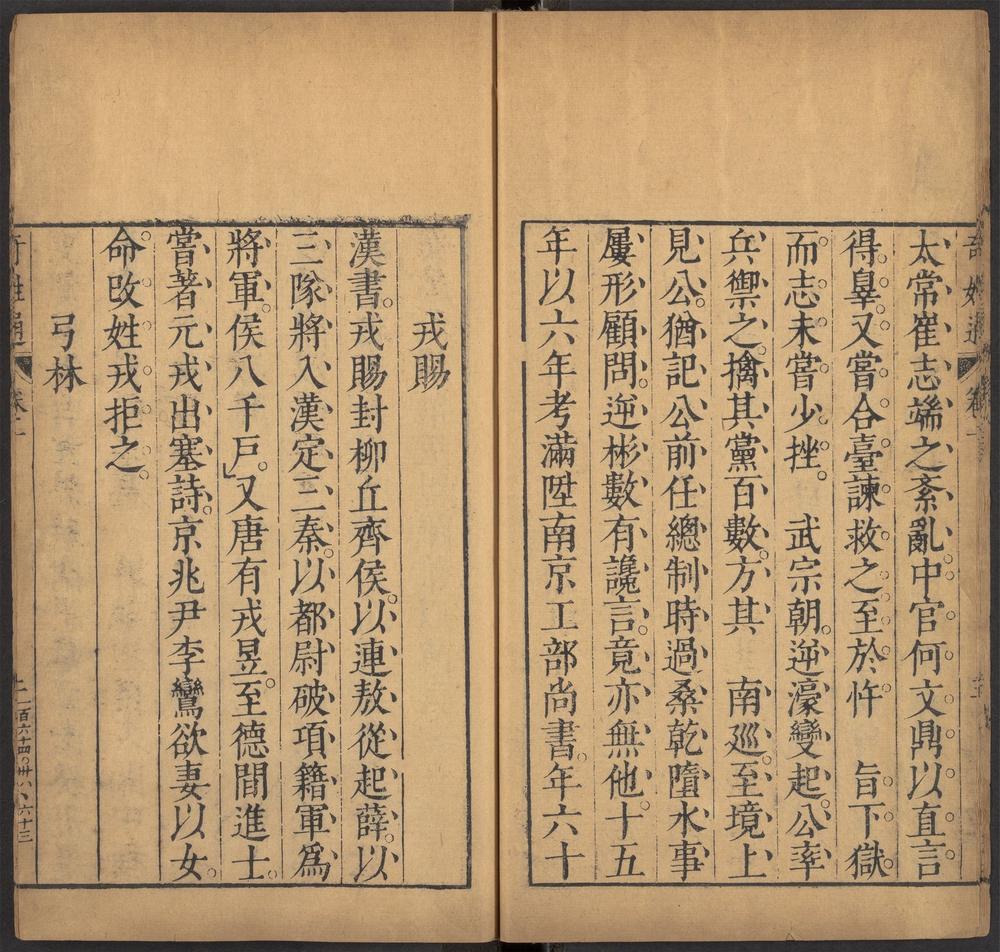 太常崔志端之紊亂中官何文鼎以直言
得辠又嘗合臺諫救之至於忤　旨下獄
而志未嘗少挫　武宗朝逆濠變起公率
兵禦之擒其黨百數方其　南廵至境上
見公猶記公前任總制時過桑乾墮水事
屢形顧問逆彬數有讒言竟亦無他十五
年以六年考滿陞南京工部尚書年六十
戎賜
漢書戎賜封柳丘齊侯以連敖從起薛以
三隊將入漢定三秦以都尉破項籍軍爲
將軍侯八千戶又唐有戎昱至德間進士
嘗著元戎出塞詩京兆尹李鸞欲妻以女
命改姓戎拒之
弓林